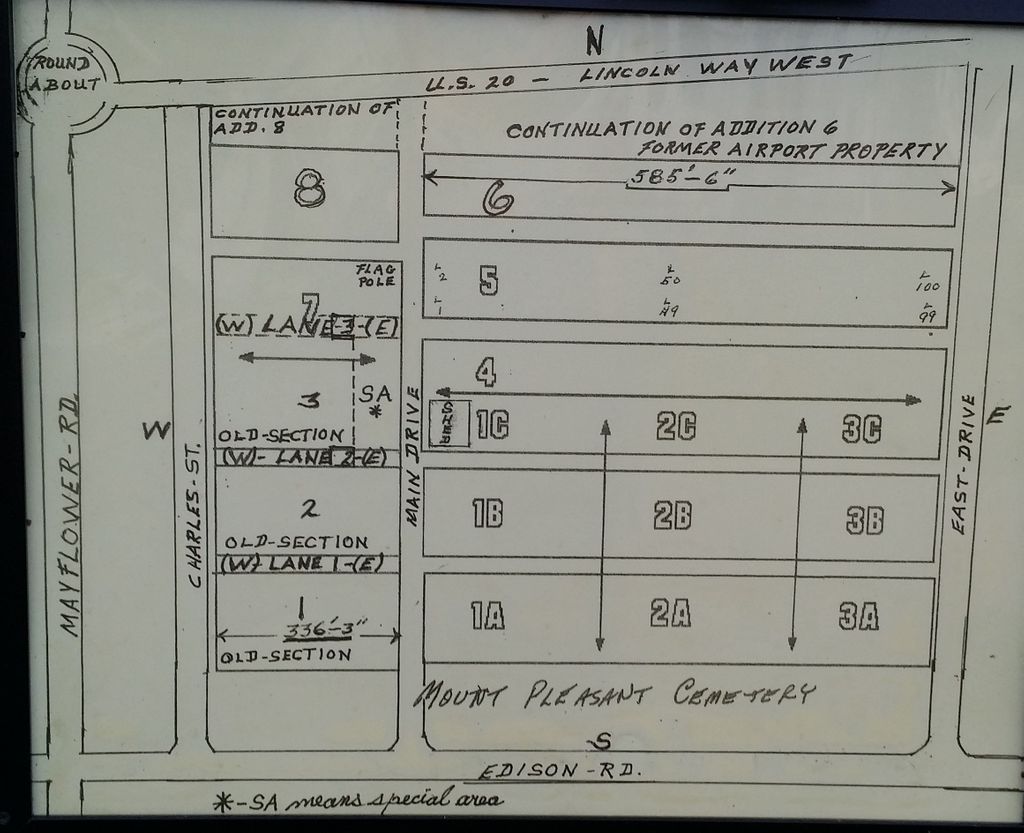 N
ROUND
ABOUT
U.S. 20 - LINCOLN WAY WEST
CONTINUATION OF
ADD. 8
CONTINUATION OF ADDITION 6
FORMER AIRPORT PROPERTY
585'-6"
8
6
FLAG
POLE
7
(W) LANE-3-(E)
5
L
2
L
50
L
100
L
1
L
49
L
99
3
SA
*
OLD-SECTION
(W)- LANE 2-(E)
4
1C
2C
3C
W
E
MAYFLOWER-RD.
CHARLES-ST.
MAIN DRIVE
EAST-DRIVE
2
OLD-SECTION
(W)-LANE 1-(E)
1B
2B
3B
1
336'-3"
OLD-SECTION
1A
2A
3A
MOUNT PLEASANT CEMETERY
S
EDISON-RD.
*-SA means special area